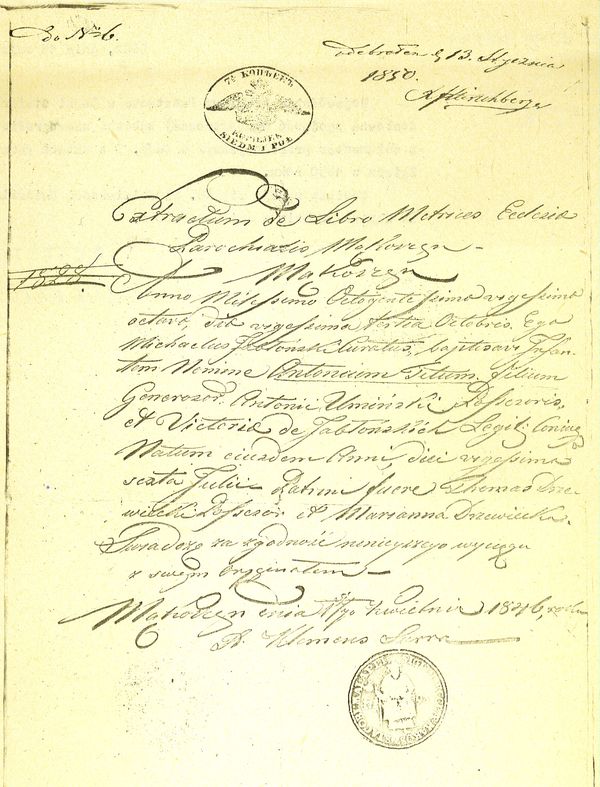 Do N° 6.
odebrałem d. 13. Stycznia
1850.
Hirschberg
7½ КОПѢЕКЪ
KOPIEJEK
SIEDM I PÓŁ
Extractum de Libro Metrices Ecclesia
Parochialis Makoszyn
1828
Makoszyn
Anno Milessimo Octogentessimo vigessimo
octavo, die vigessima tertia Octobris. Ego
Michaelus Jabłoński Curatus, baptisavi Infan-
tem Nomine Antonium Titum, Filium
Generosor. Antonii Umiński Possesoris,
et Victoria de Jabłońskich Legit: Coniug
Natum eiusdem Anni, diei vigessima
sexta Julii. Patrini fuere Thomas Drze-
wiecki Possesor et Marianna Drzewiecka.
Świadczę za zgodność niniejszego wyciągu
z swym oryginałem
Makoszyn dnia Kwietnia 1846, roku
X. Klemens